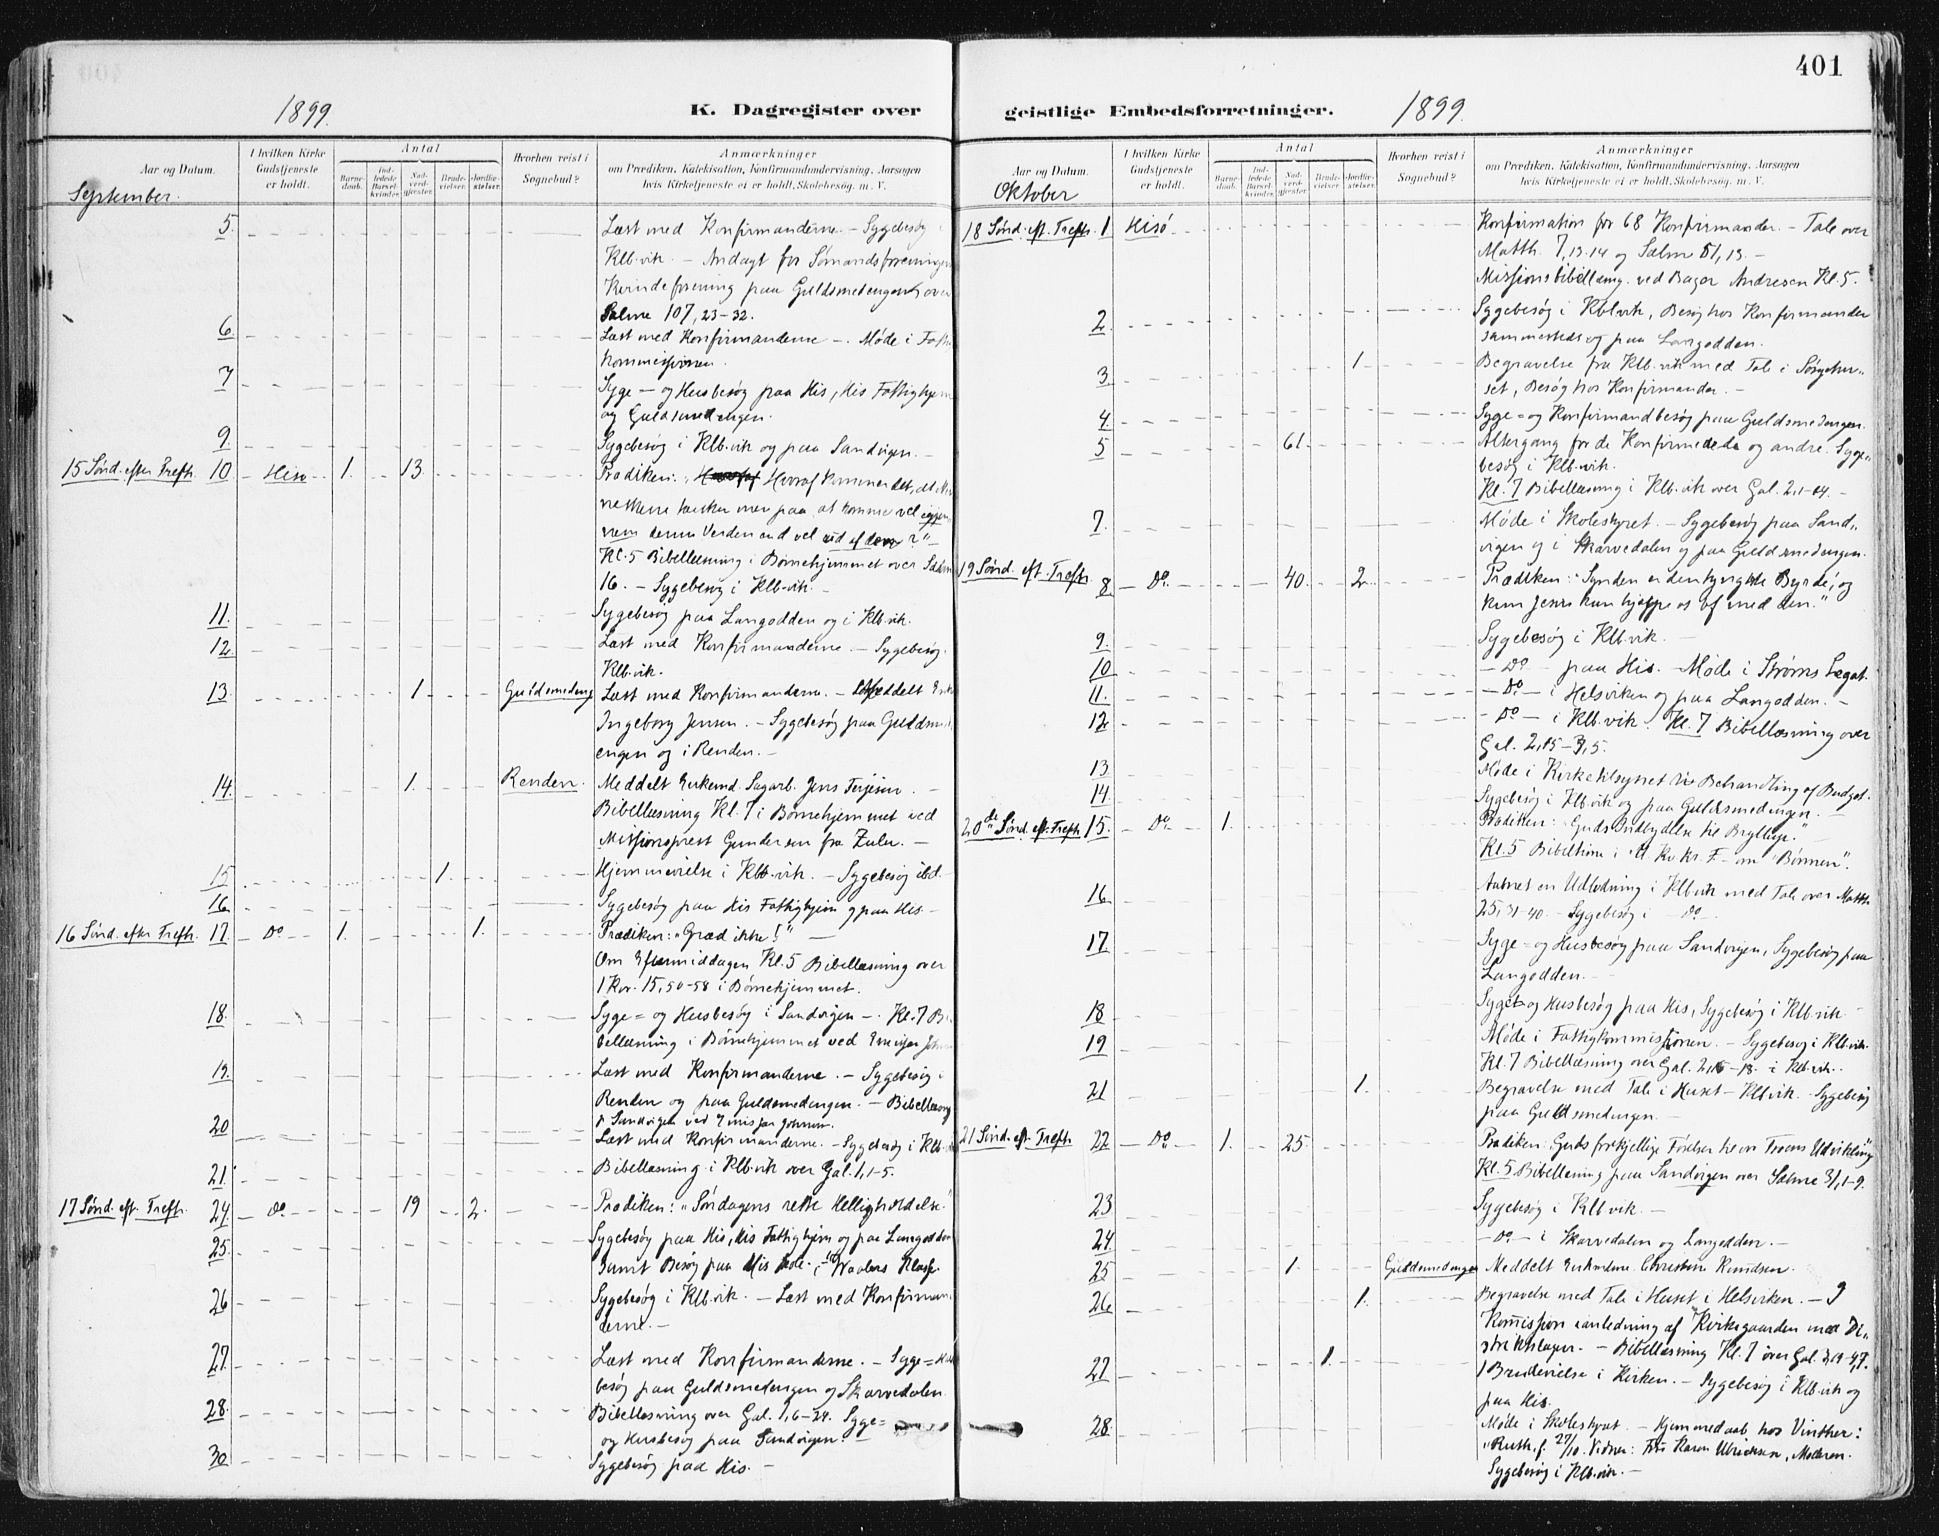 401
1899.
K. Dagregister over
geistlige Embedsforretninger.
1899.
Aar og Datum.
I hvilken Kirke Gudstjeneste er holdt.
Antal
Barnedaab.
Indledede Barselkvinder.
Nadverdgjester.
Brudevielser.
Jordfæstelser.
Hvorhen reist i Sognebud?
Anmærkninger
om Prædiken, Katekisation, Konfirmandundervisning, Aarsagen
hvis Kirketjeneste ei er holdt, Skolebesøg, m. V.
September.
5. Læst med Konfirmanderne. – Sygebesøg i
Klb.vik. – Andagt for Sømandsforeningens
Kvindeforening paa Guldsmedengen over
Salme 107, 23-32.
6. Læst med Konfirmanderne – Møde i
kommissionen.
7 Syge – og Husbesøg paa His, His Fattighjem
og Guldsmedengen.
9. Sygebesøg i Klb.vik og paa Sandvigen. –
15 Sønd. efter Trefh. 10 Hisø 1. 13. Prædiken: Hvoraf kommer det, at
neskene tænker mer paa at komme vel igjen-
nem denne Verden end vel ud af den?" –
Kl. 5 Bibellæsning i Børnehjemmet over Salme
16. – Sygebesøg i Klb.vik. –
11. Sygebesøg paa Langodden og i Klb.vik.
12. Læst med Konfirmanderne – Sygebesøg.
Klb.vik.
13. 1 Guldsmedeng Læst med Konfirmanderne. – Meddelt
Ingeborg Jensen. – Sygebesøg paa Guldsmed-
engen og i Renden. –
14. 1. Renden. Meddelt Enkemd. Sagarb. Jens Terjesen. –
Bibellæsning Kl. 7 i Børnehjemmet ved
Missionsprest Gundersen fra Zulu. –
15 1. Hjemmevielse i Klb.vik. – Sygebesøg ibd.
16 Sygebesøg paa His Fattighjem og paa His. –
16 Sønd. efter Trefh. 17. Do 1. 1. Prædiken: "Græd ikke!" –
Om Eftermiddagen Kl. 5 Bibellæsning over
1 Kor. 15, 50-58 i Børnehjemmet.
18. Syge = og Husbesøg i Sandvigen – Kl. 7 Bi-
bellæsning i Børnehjemmet ved Emissær
19. Læst med Konfirmanderne. – Sygebesøg i
Renden og paa Guldsmedengen. – Bibellæsning
i Sandvigen ved Emissær Johnsen.
20 Læst med Konfirmanderne. – Sygebesøg i Klb.
21. Bibellæsning i Klb.vik over Gal. 1, 1-5.
17 Sønd. eft. Trefh. 24. Do. 19 2. Prædiken: "Søndagens rette Helligholdelse."
25. Sygebesøg paa His, His Fattighjem og paa Langodden
Samt Besøg paa His Skole i Klasse.
26 Sygebesøg i Klb.vik. – Læst med Konfirman-
derne. –
27. Læst med Konfirmanderne. – Syge =
besøg paa Guldsmedengen og Skarvedalen.
28. Bibellæsning over Gal. 1, 6-24. Syge =
og Husbesøg paa Sandvigen. –
30 Sygebesøg paa His. –
Aar og Datum.
I hvilken Kirke Gudstjeneste er holdt.
Antal
Barnedaab.
Indledede Barselkvinder.
Nadverdgjester.
Brudevielser.
Jordfæstelser.
Hvorhen reist i Sognebud?
Anmærkninger
om Prædiken, Katekisation, Konfirmandundervisning, Aarsagen
hvis Kirketjeneste ei er holdt, Skolebesøg, m. V.
Oktober
18 Sønd. eft. Trefh. 1 Hisø Konfirmation for 68 Konfirmander. – Tale over
Matth. 7, 13.14 og Salme 51, 13. –
Missionsbibellæsng. ved Bager Andresen Kl. 5.
2. Sygebesøg i Klb.vik, Besøg hos Konfirmander
sammesteds og paa Langodden.
3. 1. Begravelse fra Klb.vik med Tale i Sørgehu-
set, Besøg hos Konfirmander. –
4. Syge = og Konfirmandbesøg paa Guldsmedengen.
5 61. Altergang for de Konfirmerede og andre. Syge-
besøg i Klb.vik.
Kl. 7 Bibellæsning i Klb.vik over Gal. 2, 1-14. –
7. Møde i Skolestyret. – Sygebesøg paa Sand-
vigen og i Skarvedalen og paa Guldsmedengen.
19 Sønd. eft. Trefh. 8. Do. 40. 2. Prædiken: "Synden er den tyngste Byrde, og
kun Jesus kan hjelpe os af med den."
9. Sygebesøg i Klb.vik. –
10 – Do – paa His. – Møde i Strøms Legat.
11. – Do – i Helsviken og paa Langodden. –
12. – Do – i Klb.vik. Kl. 7 Bibellæsning over
Gal. 2, 15 – 3, 5.
13 Møde i Kirketilsynet Behandling af Budget.
14. Sygebesøg i Klb.vik og paa Guldsmedengen. –
20de Sønd. eft. Trefh. 15. Do. 1. Prædiken: "Guds Indbydelse til Bryllup."
Kl. 5 Bibeltime i om "Bønnen".
16 Aabnet en Udlodning i Klb.vik med Tale over Matth.
25, 31-40. – Sygebesøg i – Do –
17. Syge = og Husbesøg paa Sandvigen, Sygebesøg paa
Langodden. –
18 Syge = og Husbesøg paa His, Sygebesøg i Klb.vik.
19 Møde i Fattigkommissionen. – Sygebesøg i Klb.vik.
Kl. 7 Bibellæsning over Gal. i Klb.vik.
21 1. Begravelse med Tale i Huset – Klb.vik. Sygebesøg
paa Guldsmedengen. –
21 Sønd. eft. Trefh. 22 Do 1. 25. Prædiken: Guds forskjellige Troens Udvikling"
Kl. 5 Bibellæsning paa Sandvigen over Salme 31, 1-9.
23 Sygebesøg i Klb.vik. –
24. – Do – i Skarvedalen og Langodden. –
25 1. Guldsmedengen Meddelt Christine Knudsen.
26. 1. Begravelse med Tale i Huset i Helsviken. – I
Kommission anledning af Kirkegaarden med Di-
striktslægen. – Bibellæsning Kl. 7 over Gal.
27 1. 1 Brudevielse i Kirken. – Sygebesøg i Klb.vik og
paa His.
28. Møde i Skolestyret – Hjemmedaab hos Vinther:
"Ruth. f. 27/10. Vidner: Karen Ulrichsen, Moderen.
Sygebesøg i Klb.vik. –